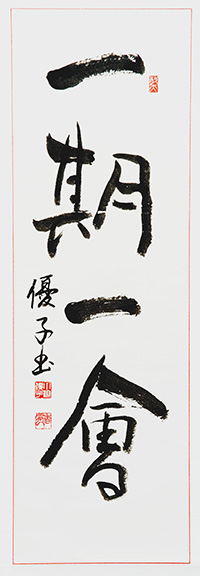 一期一會
優子书